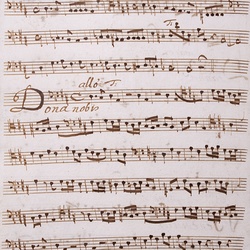 allo
Dona nobis